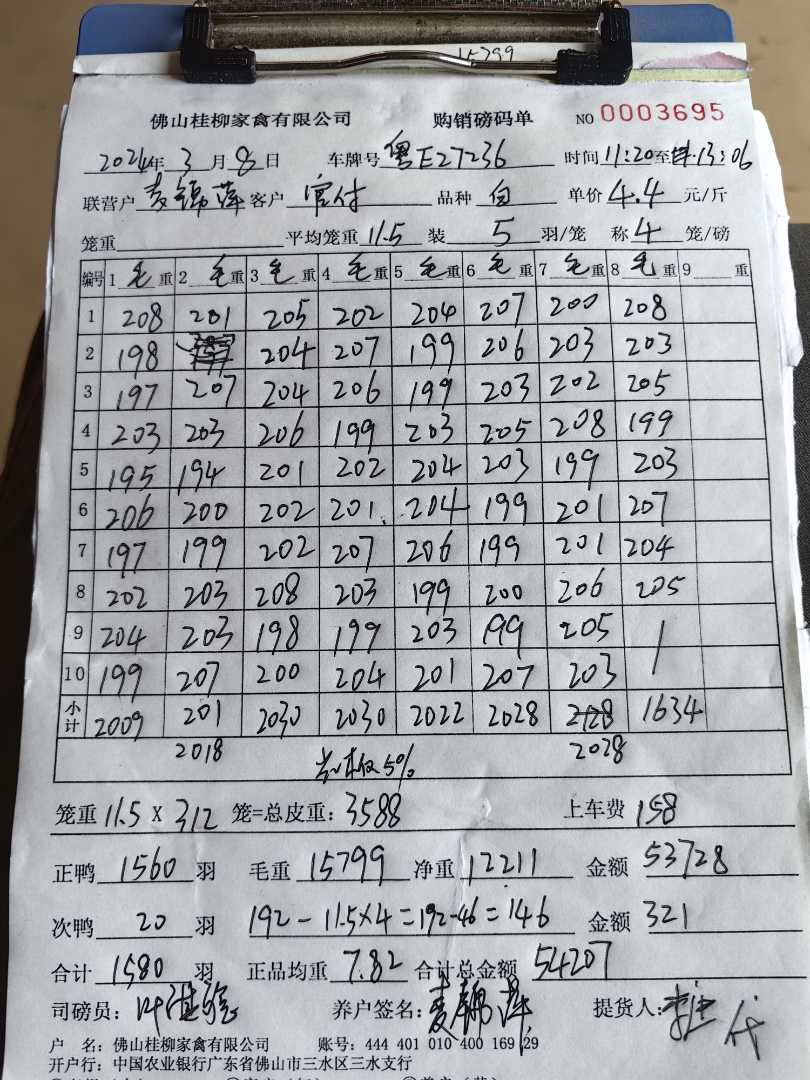 15799
佛山桂柳家禽有限公司 购销磅码单 NO 0003695
2024年 3 月 8 日 车牌号 粤E27236 时间 11:20 至 13:06
联营户 麦锦萍 客户 官付 品种 白 单价 4.4 元/斤
笼重 平均笼重 11.5 装 5 羽/笼 称 4 笼/磅
编号 1 毛 重 2 毛 重 3 毛 重 4 毛 重 5 毛 重 6 毛 重 7 毛 重 8 毛 重 9 重
1 208 201 205 202 204 207 200 208
2 198 204 207 199 206 203 203
3 197 207 204 206 199 203 202 205
4 203 203 206 199 203 205 208 199
5 195 194 201 202 204 203 199 203
6 206 200 202 201 204 199 201 207
7 197 199 202 207 206 199 201 204
8 202 203 208 203 199 200 206 205
9 204 203 198 199 203 199 205
10 199 207 200 204 201 207 203
小计 2009 201 2030 2030 2022 2028 2128 1634
2018 5% 2028
笼重 11.5 X 312 笼=总皮重: 3588 上车费 158
正鸭 1560 羽 毛重 15799 净重 12211 金额 53728
次鸭 20 羽 192-11.5×4=192-46=146 金额 321
合计 1580 羽 正品均重 7.82 合计总金额 54207
司磅员: 叶 养户签名: 麦锦萍 提货人: 代
户 名: 佛山桂柳家禽有限公司 账号: 444 401 010 400 169 29
开户行: 中国农业银行广东省佛山市三水区三水支行